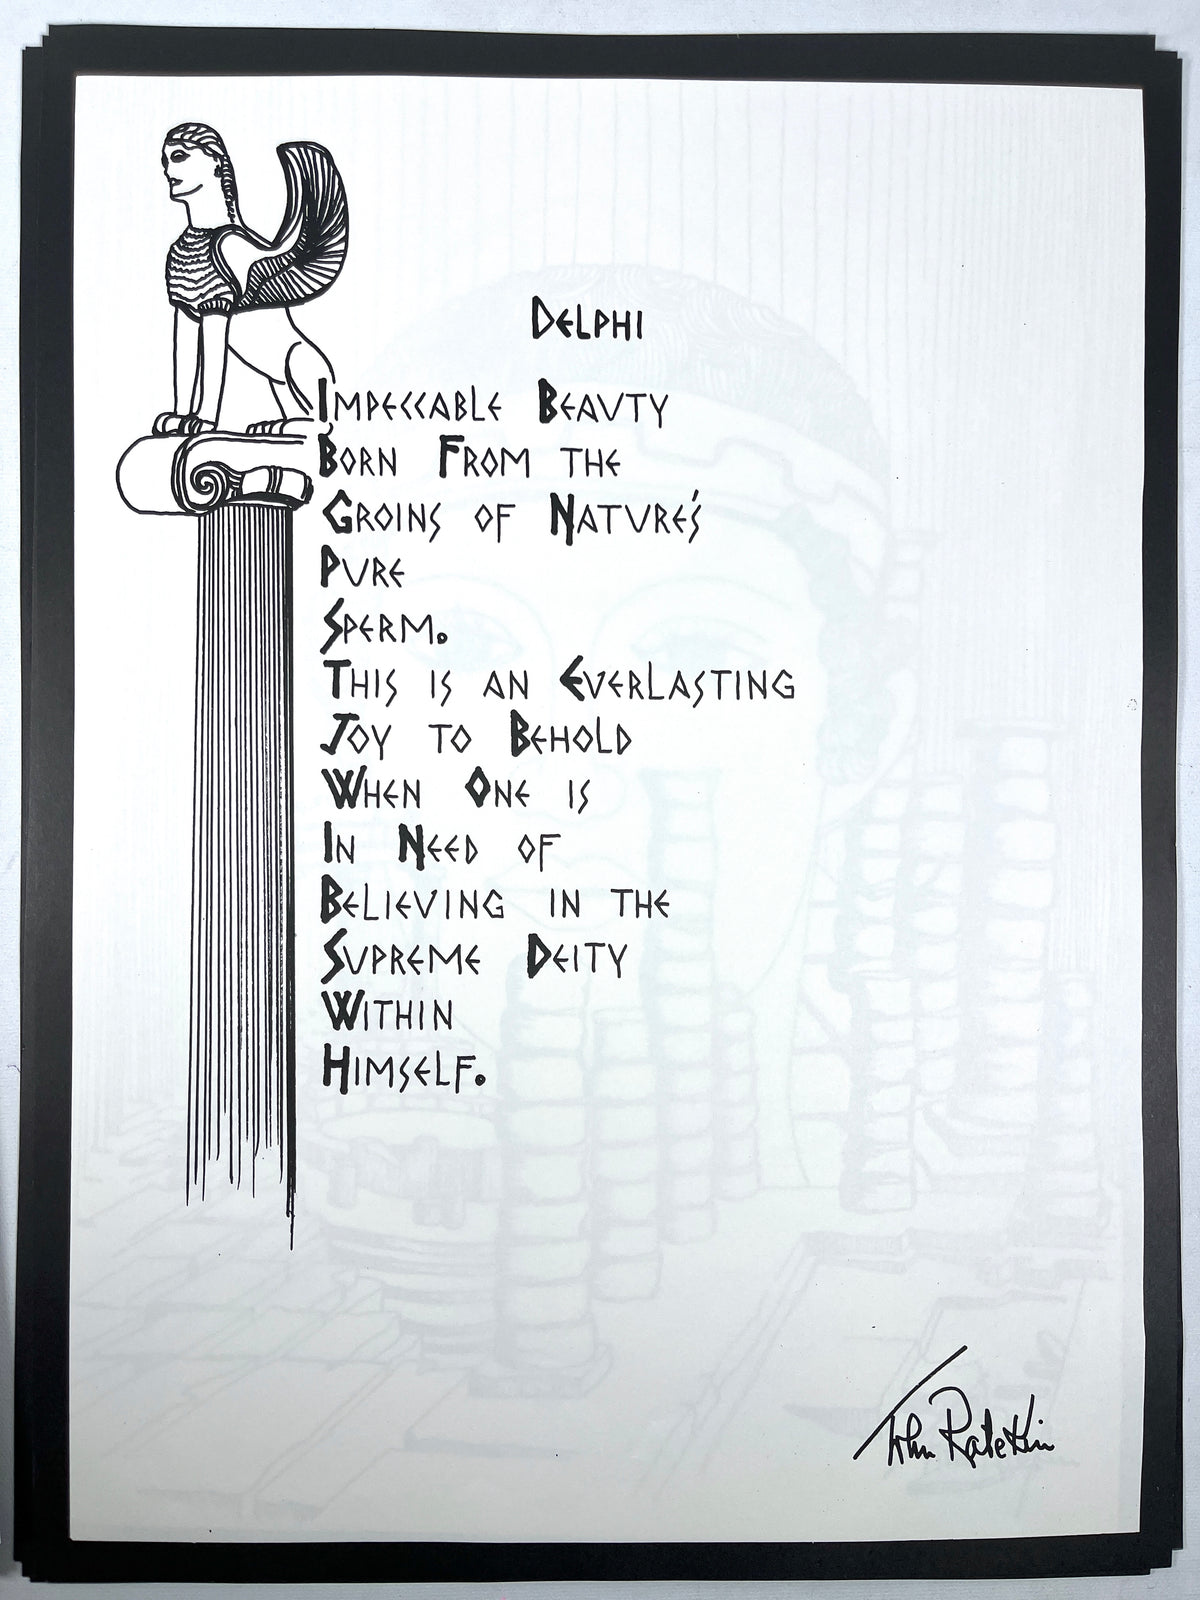 DELPHI
IMPECCABLE BEAUTY
BORN FROM THE
GROINS OF NATURE'S
PURE
SPERM.
THIS IS AN EVERLASTING
JOY TO BEHOLD
WHEN ONE IS
IN NEED OF
BELIEVING IN THE
SUPREME DEITY
WITHIN
HIMSELF.
John Ratekin